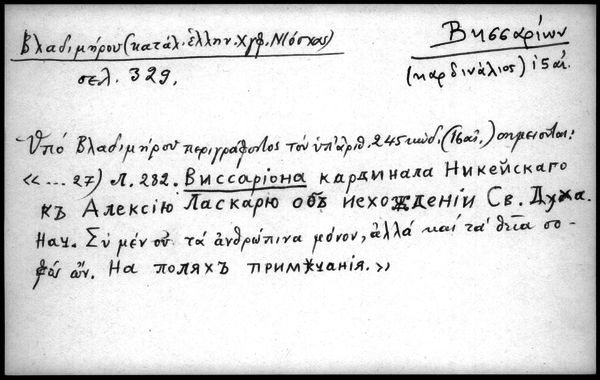 Βλαδιμήρου (κατάλ. ἑλλην. χγφ. Μόσχας)
σελ. 329.
Βησσαρίων
(καρδινάλιος) 15 αἰ.
Ὑπό Βλαδιμήρου περιγράφοντος τόν ὑπ' ἀριθ. 245 κώδ. (16 αἰ.) σημειοῦται:
«... 27) Л. 282. Виссаріона кардинала Никейскаго
къ Алексію Ласкарю объ исхожденіи Св. Духа.
Нач. Σύ μέν οὐ τά ἀνθρώπινα μόνον, ἀλλά καί τά θεῖα σο-
φός ὤν. На поляхъ примѣчанія.»